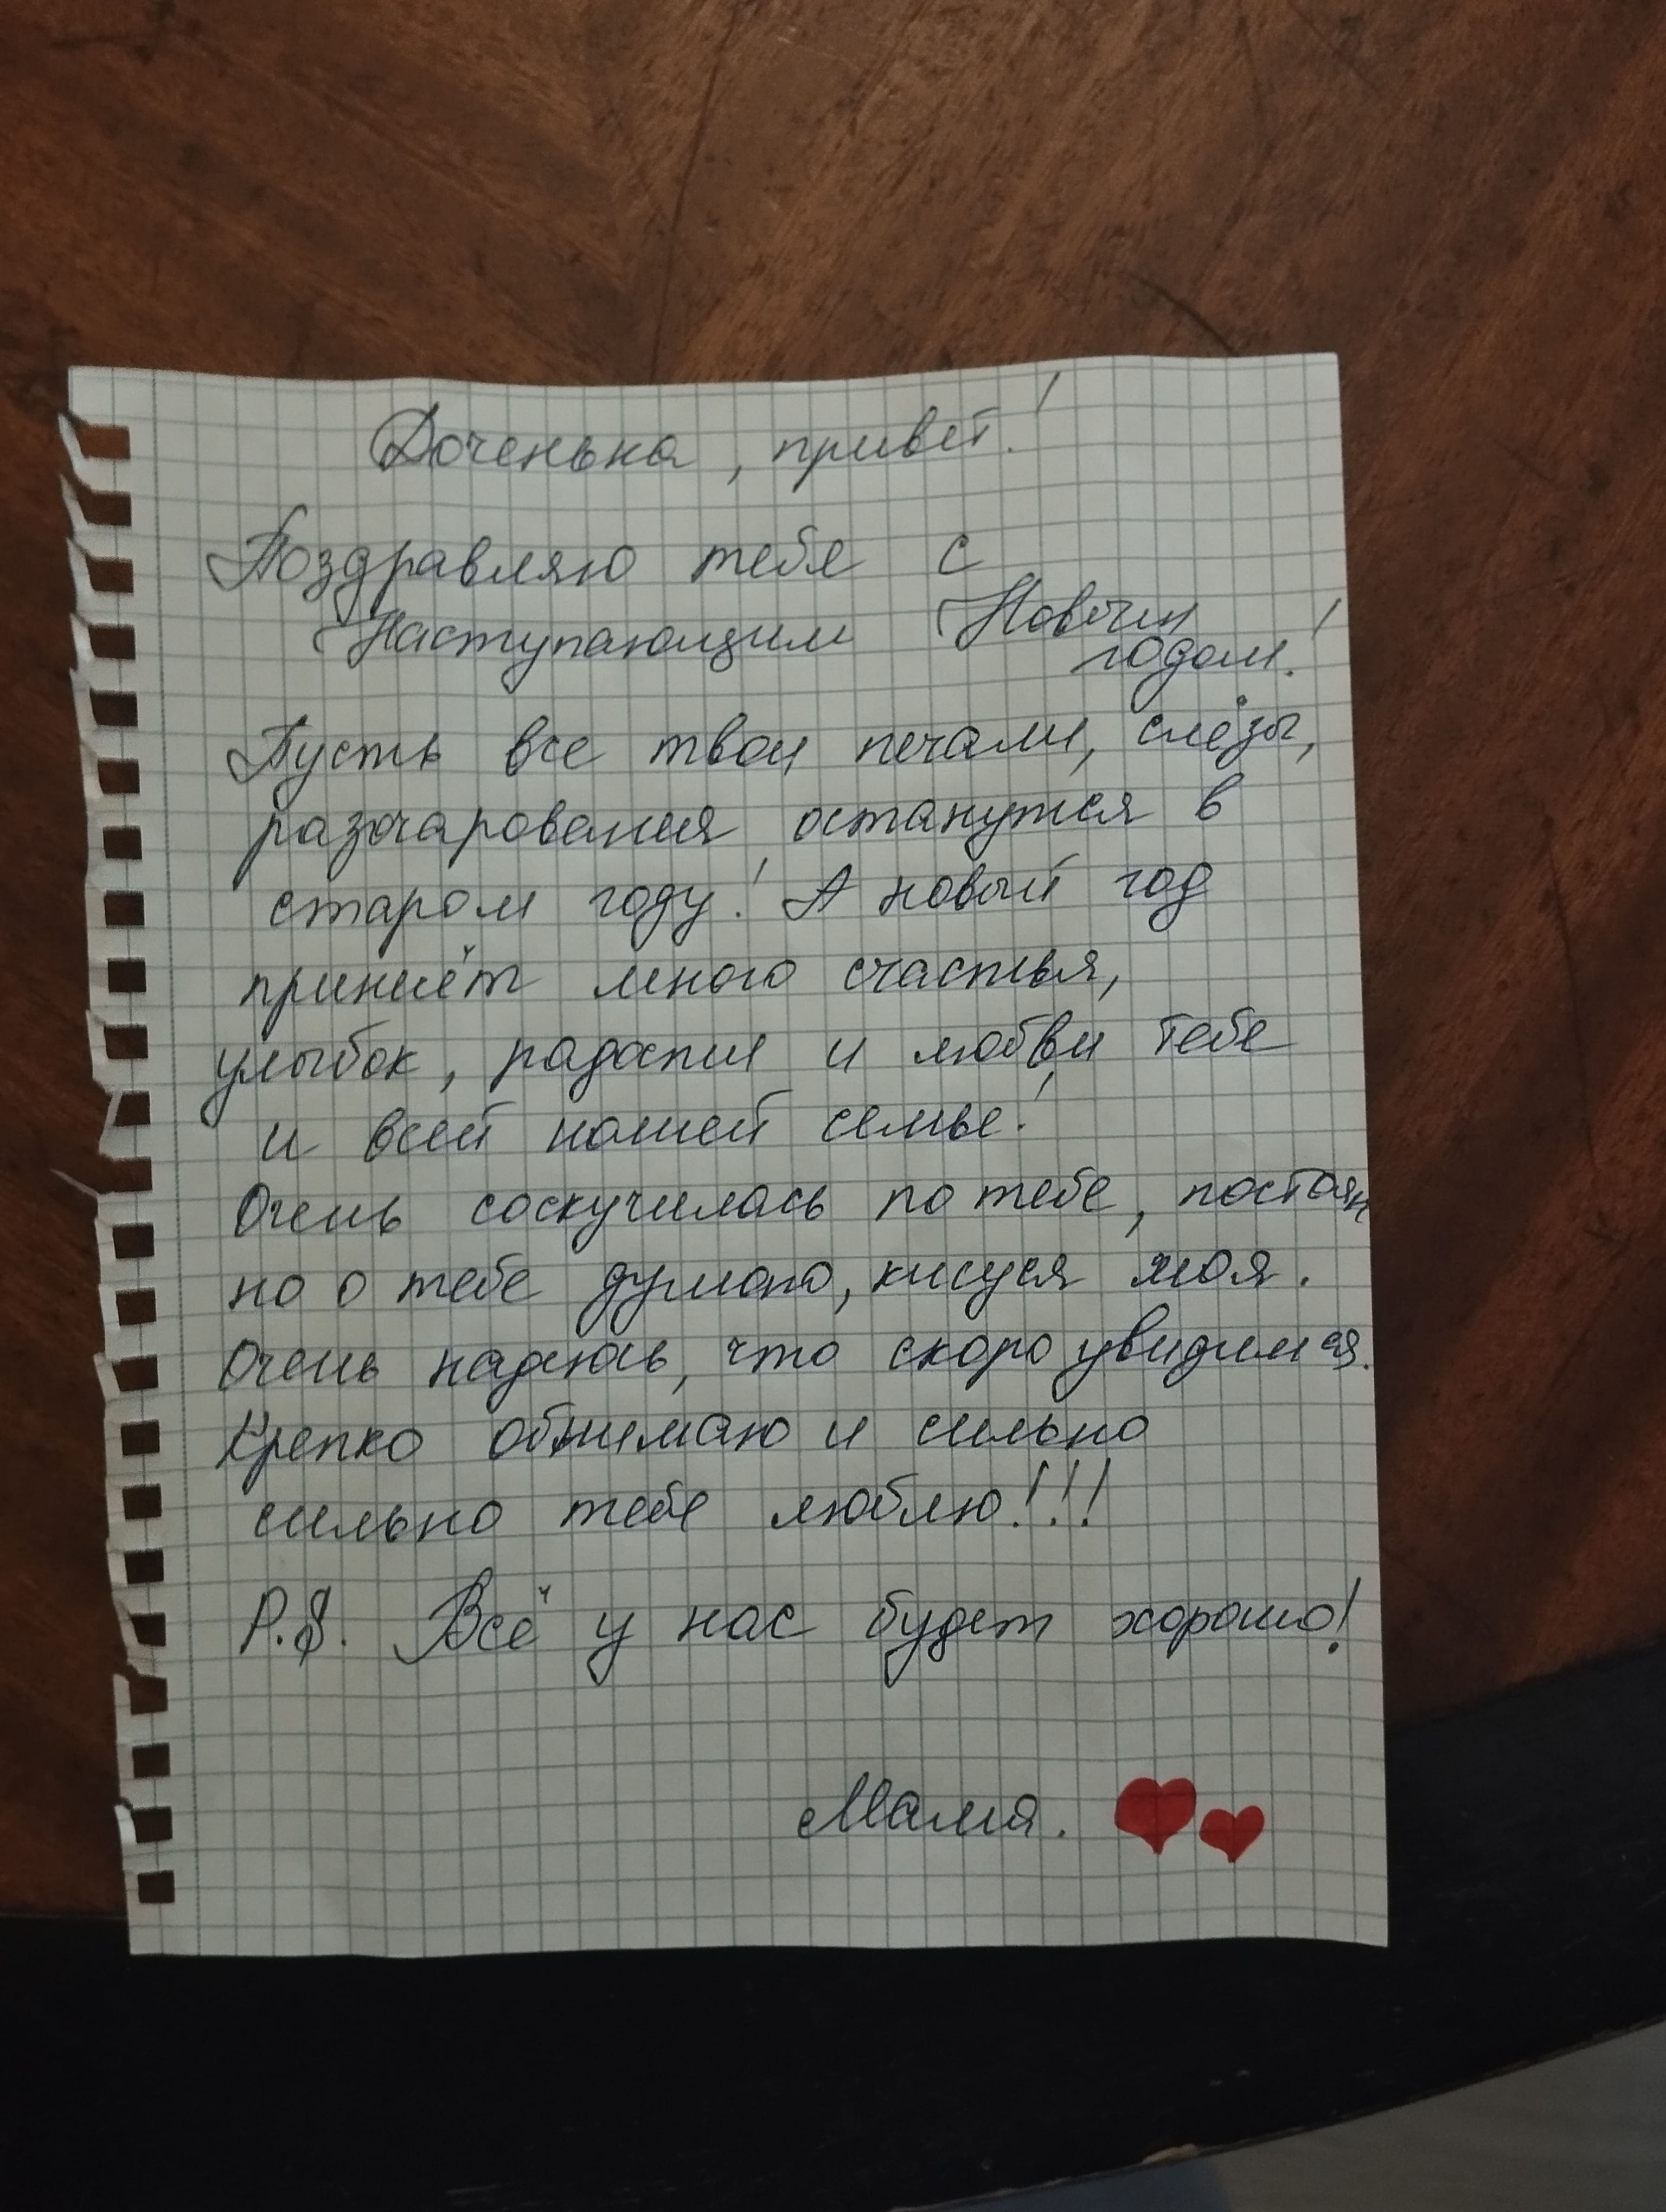 Доченька, привет!
Поздравляю тебя с
Наступающим Новым
годом!
Пусть все твои печали, слёзы,
разочарования останутся в
старом году! А новый год
принесёт много счастья,
улыбок, радости и любви тебе
и всей нашей семье!
Очень соскучилась по тебе, постоян
но о тебе думаю, кисуся моя.
Очень надеюсь, что скоро увидимся.
Крепко обнимаю и сильно
сильно тебя люблю!!!
P.S. Всё у нас будет хорошо!
Мама.